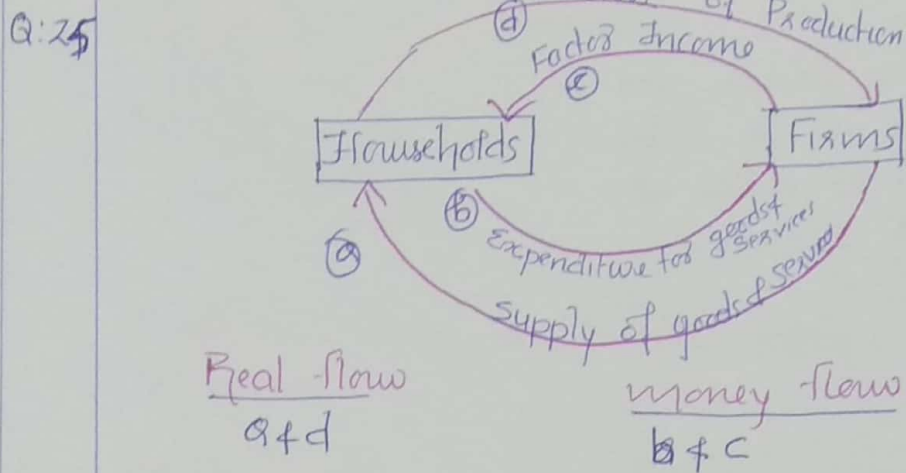 Q: 25
d
of Production
Factor Income
c
Households
Firms
b
Expenditure for goods &
services
a
Supply of goods &
Real flow
a & d
Money flow
b & c